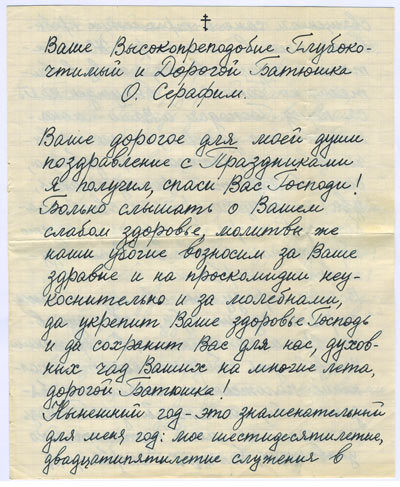 Ваше Высокопреподобие Глубоко-
чтимый и Дорогой Батюшка
О. Серафим.
Ваше дорогое для моей души
поздравление с Праздниками
Я получил, спаси Вас Господи!
Больно слышать о Вашем
слабом здоровье, молитвы же
наши убогие возносим за Ваше
здравие и на проскомидии неу-
коснительно и за молебнами,
да укрепит Ваше здоровье Господь
и да сохранит Вас для нас, духов-
ных чад Ваших на многие лета,
дорогой Батюшка!
Нынешний год - это знаменательний
для меня год: мое шестидесятилетие,
двадцатипятилетие служения в